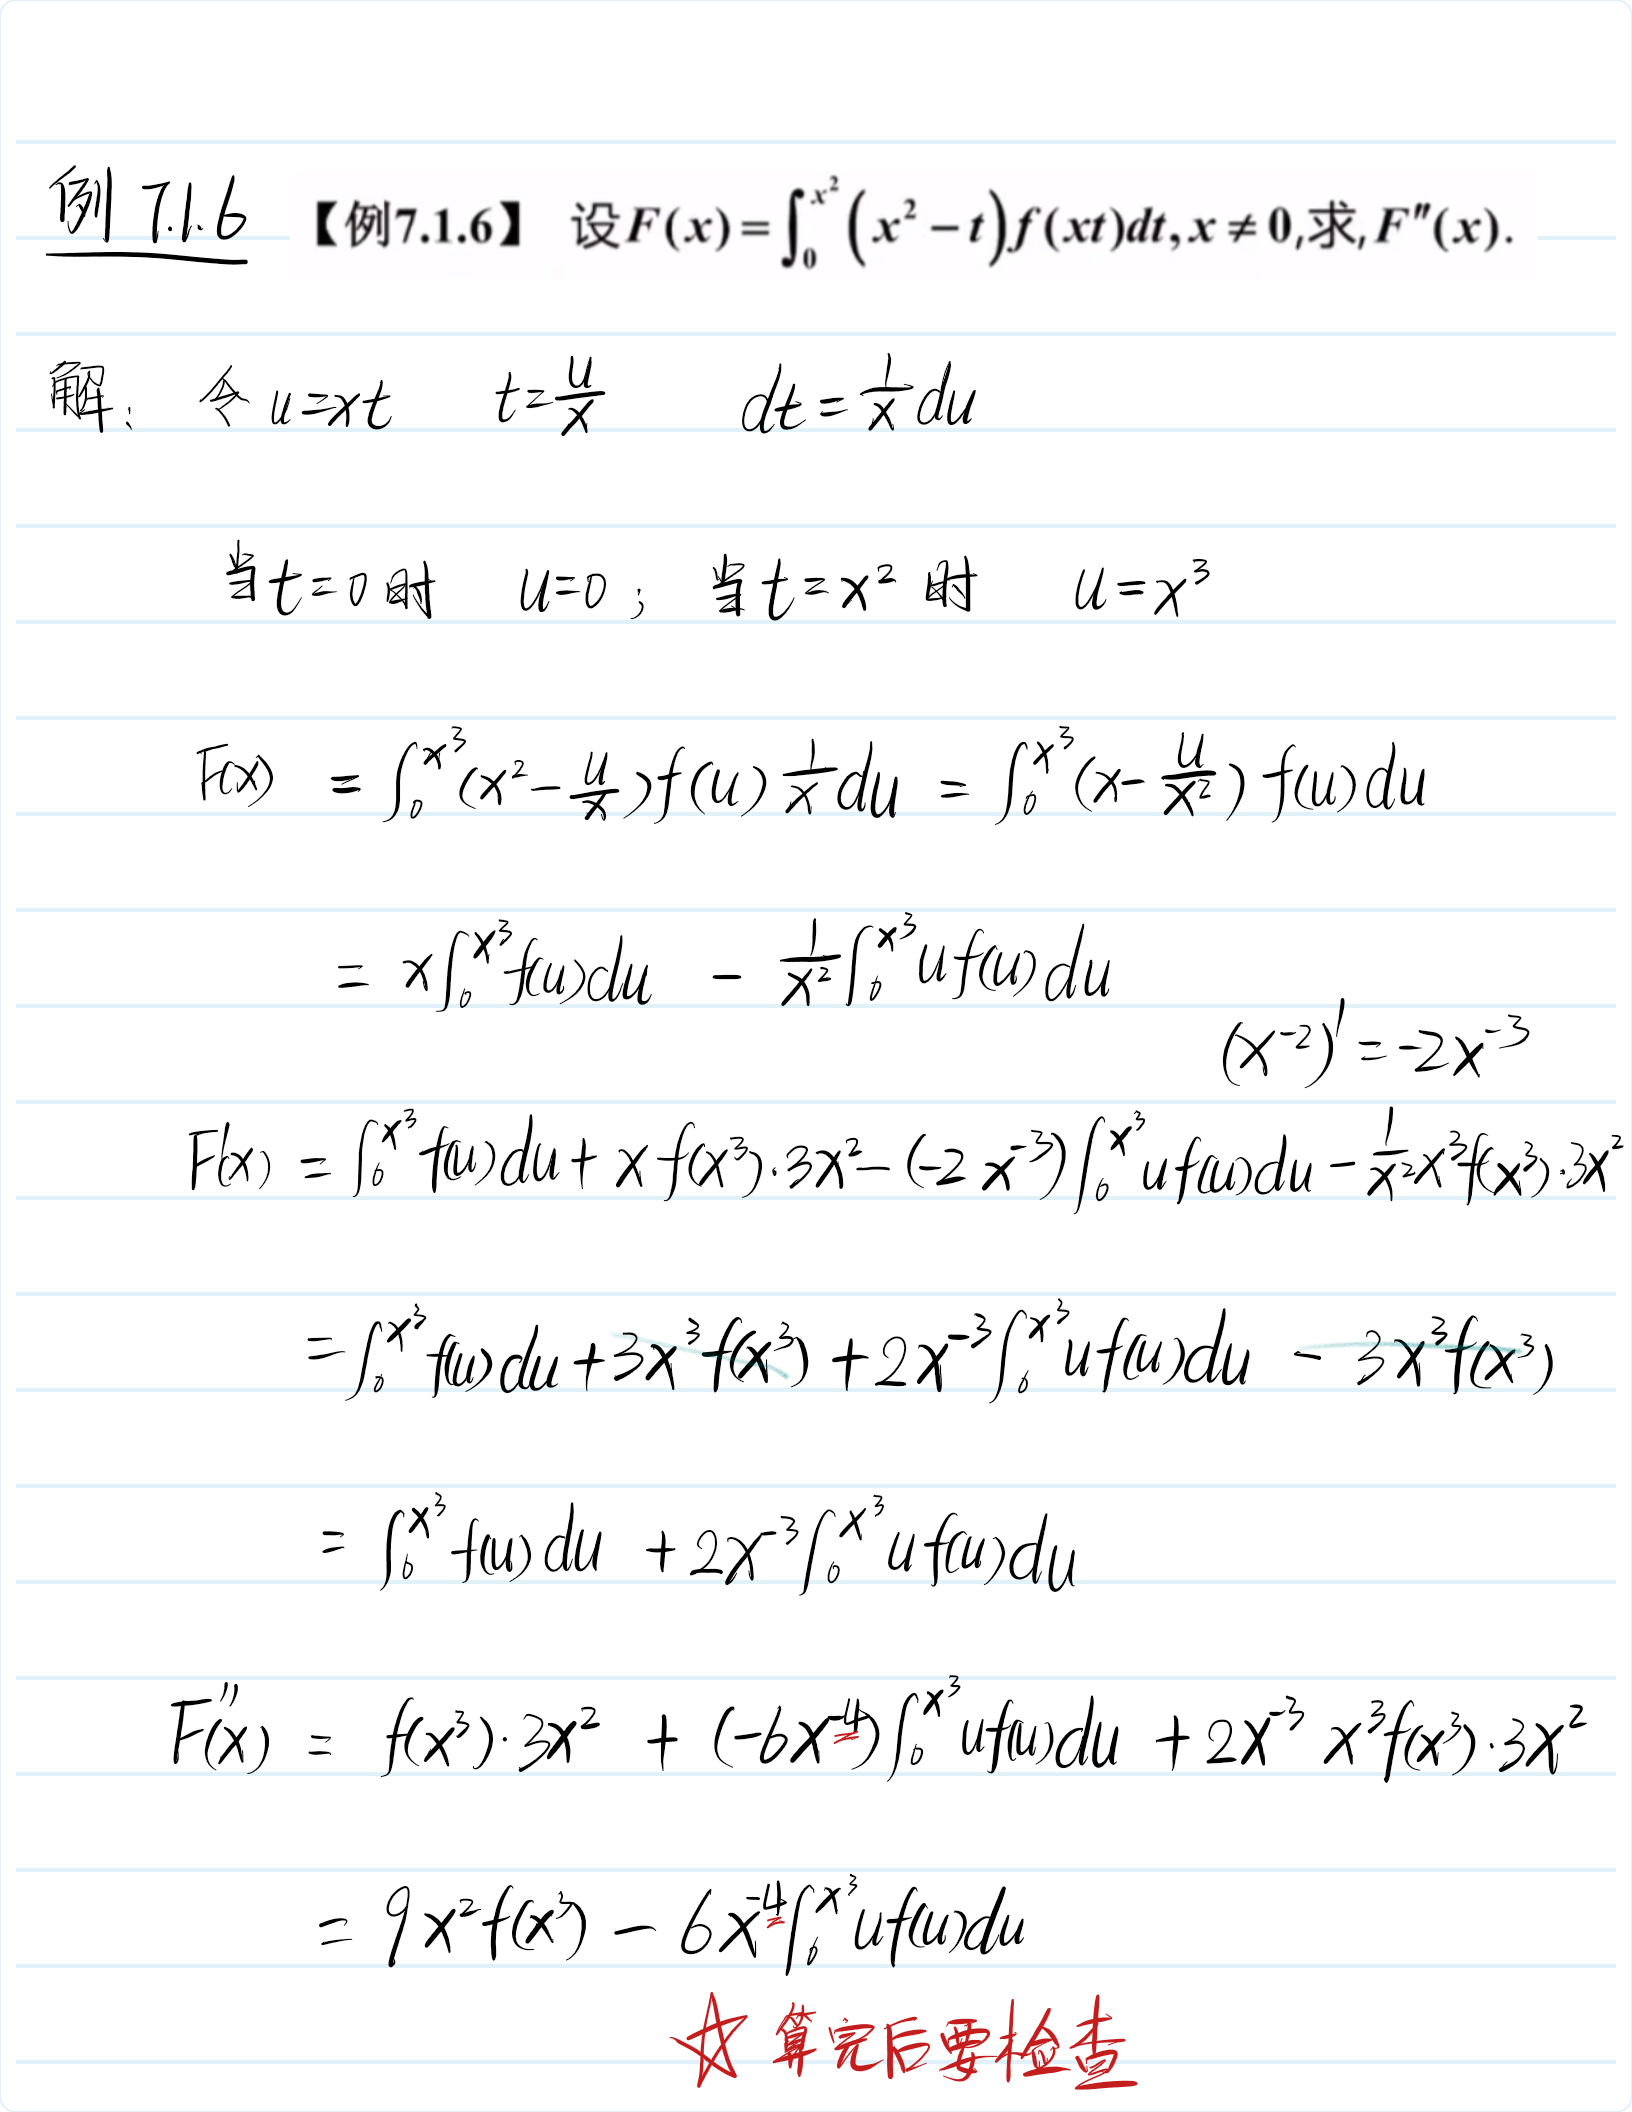 例 7.1.6 【例7.1.6】 设F(x)=∫₀^{x²}(x²−t)f(xt)dt, x≠0,求,F″(x).
解: 令 u=xt t=u/x dt=1/x du
当t=0时 u=0; 当t=x²时 u=x³
F(x) = ∫₀^{x³}(x²−u/x)f(u)1/x du = ∫₀^{x³}(x−u/x²)f(u)du
= x∫₀^{x³}f(u)du − 1/x²∫₀^{x³}uf(u)du
(x⁻²)′=−2x⁻³
F′(x) = ∫₀^{x³}f(u)du+xf(x³)·3x²−(−2x⁻³)∫₀^{x³}uf(u)du−1/x² x³f(x³)·3x²
=∫₀^{x³}f(u)du+3x³f(x³)+2x⁻³∫₀^{x³}uf(u)du − 3x³f(x³)
= ∫₀^{x³}f(u)du +2x⁻³∫₀^{x³}uf(u)du
F″(x) = f(x³)·3x² + (−6x⁻⁴)∫₀^{x³}uf(u)du + 2x⁻³ x³f(x³)·3x²
= 9x²f(x³) − 6x⁻⁴∫₀^{x³}uf(u)du
☆ 算完后要检查